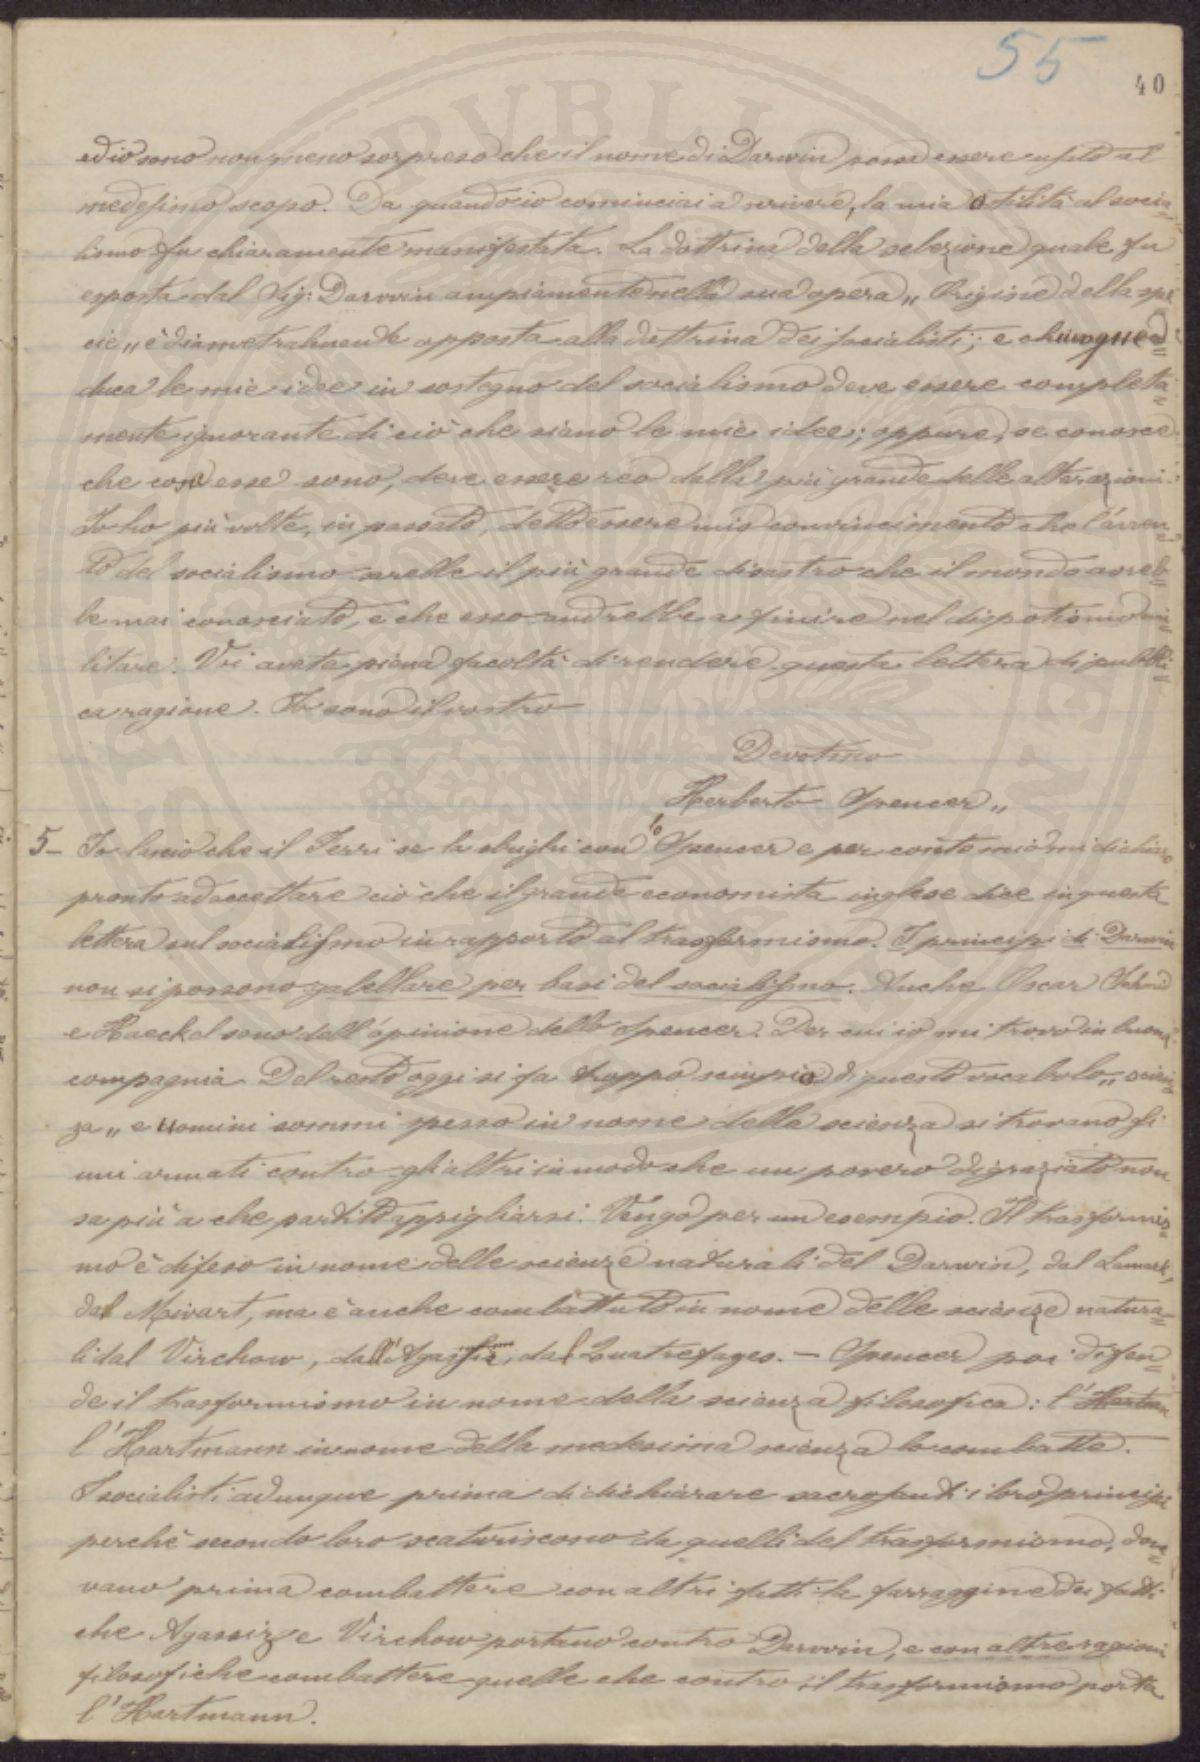 55
40
ed io sono non meno sorpreso che il nome di Darwin possa essere usato al
medesimo scopo. Da quando io cominciai a scrivere, la mia ostilità al socia=
lismo fu chiaramente manifestata. La dottrina della selezione quale fu
esposta dal Sig: Darwin ampiamente nella sua opera „ Origine della spe
cie „ è diametralmente opposta alla dottrina dei socialisti; e chiunque ad=
duca le mie idee in sostegno del socialismo deve essere completa=
mente ignorante di ciò che siano le mie idee; oppure, se conosce
che cosa esse sono, deve essere reo della più grande delle alterazioni.
Io ho più volte, in passato, detto essere mio convincimento che l'avven=
to del socialismo sarebbe il più grande disastro che il mondo avreb=
be mai conosciuto, e che esso andrebbe a finire nel dispotismo mi=
litare. Voi avete piena facoltà di rendere questa lettera di pubbli=
ca ragione. Io sono il vostro
Devotmo
Herberto Spencer „
5– Io lascio che il Ferri se la sbrighi con lo Spencer e per conto mio mi dichiaro
pronto ad accettare ciò che il grande economista inglese dice in questa
lettera sul socialismo in rapporto al trasformismo. I principi di Darwin
non si possono gabellare per basi del socialismo. Anche Oscar Schmid
e Haeckel sono dell'opinione dello Spencer. Per cui io mi trovo in buona
compagnia. Del resto oggi si fa troppo sciupio di questo vocabolo „ scien
za „ e uomini sommi spesso in nome della scienza si trovano gli
uni armati contro gli altri in modo che un povero disgraziato non
sa più a che partito appigliarsi. Vengo per un esempio. Il trasformis=
mo è difeso in nome delle scienze naturali del Darwin, dal Lamark,
dal Mivart, ma è anche combattuto in nome delle scienze natura=
li dal Virchow, dall'Agassiz, dal Quatrefages. – Spencer poi difen=
de il trasformismo in nome della scienza filosofica: l'Hartman
l'Hartmann in nome della medesima scienza lo combatte.
I socialisti adunque prima di dichiarare sacrosanti i loro principi
perchè secondo loro scaturiscono da quelli del trasformismo, dove=
vano prima combattere con altri fatti la farraggine dei fatti
che Agassiz e Virchow portano contro Darwin, e con altre ragioni
filosofiche combattere quelle che contro il trasformismo porta
l'Hartmann.